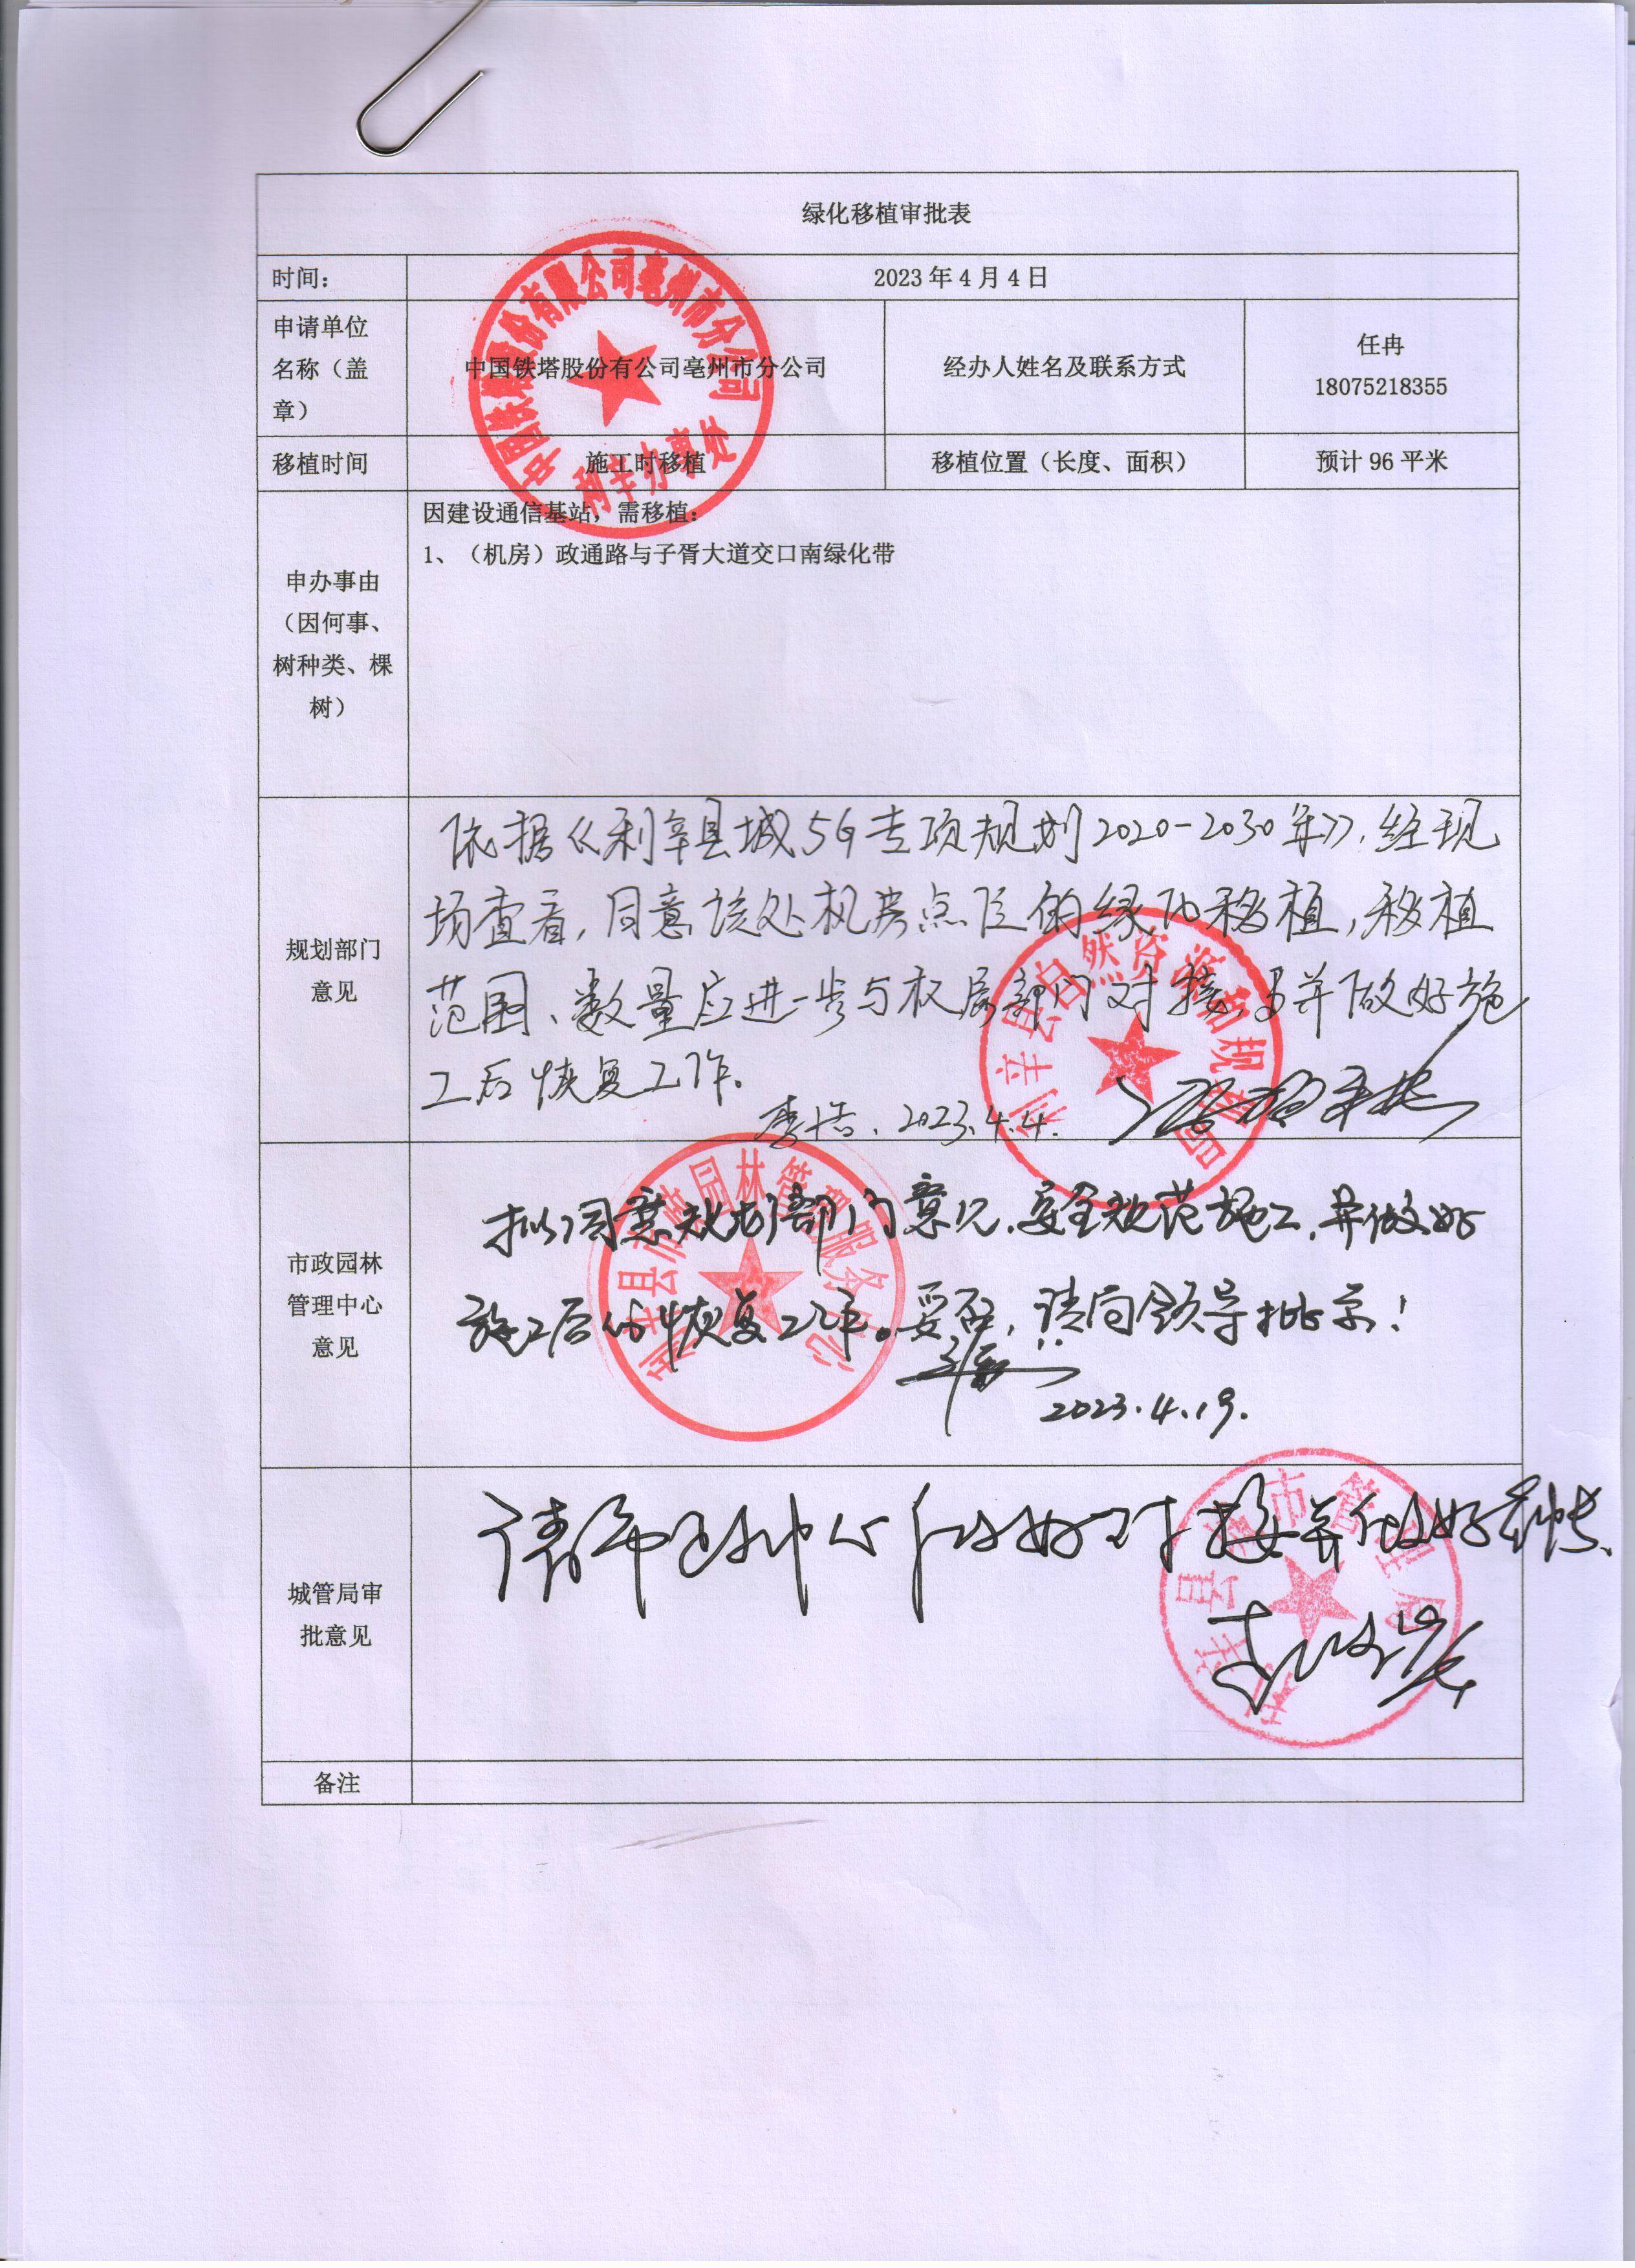 绿化移植审批表
时间：
2023 年 4 月 4 日
申请单位
名称（盖
章）
中国铁塔股份有公司亳州市分公司
经办人姓名及联系方式
任冉
18075218355
移植时间
施工时移植
移植位置（长度、面积）
预计 96 平米
申办事由
（因何事、
树种类、棵
树）
因建设通信基站，需移植：
1、（机房）政通路与子胥大道交口南绿化带
规划部门
意见
依据《利辛县城5G专项规划2020-2030年》，经现
场查看，同意该处机房点位的绿化移植，移植
范围、数量应进一步与权属部门对接，并做好施
工后恢复工作。
李浩、2023.4.4.
利辛县自然资源和规划局
市政园林
管理中心
意见
拟同意规划部门意见，安全规范施工，并做好
施工后的恢复工作。妥否，请向领导批示！
2023.4.19.
利辛县市政园林管理服务中心
城管局审
批意见
请市政中心做好对接并做好
利辛县城市管理局
备注
中国铁塔股份有限公司亳州市分公司
利辛办事处